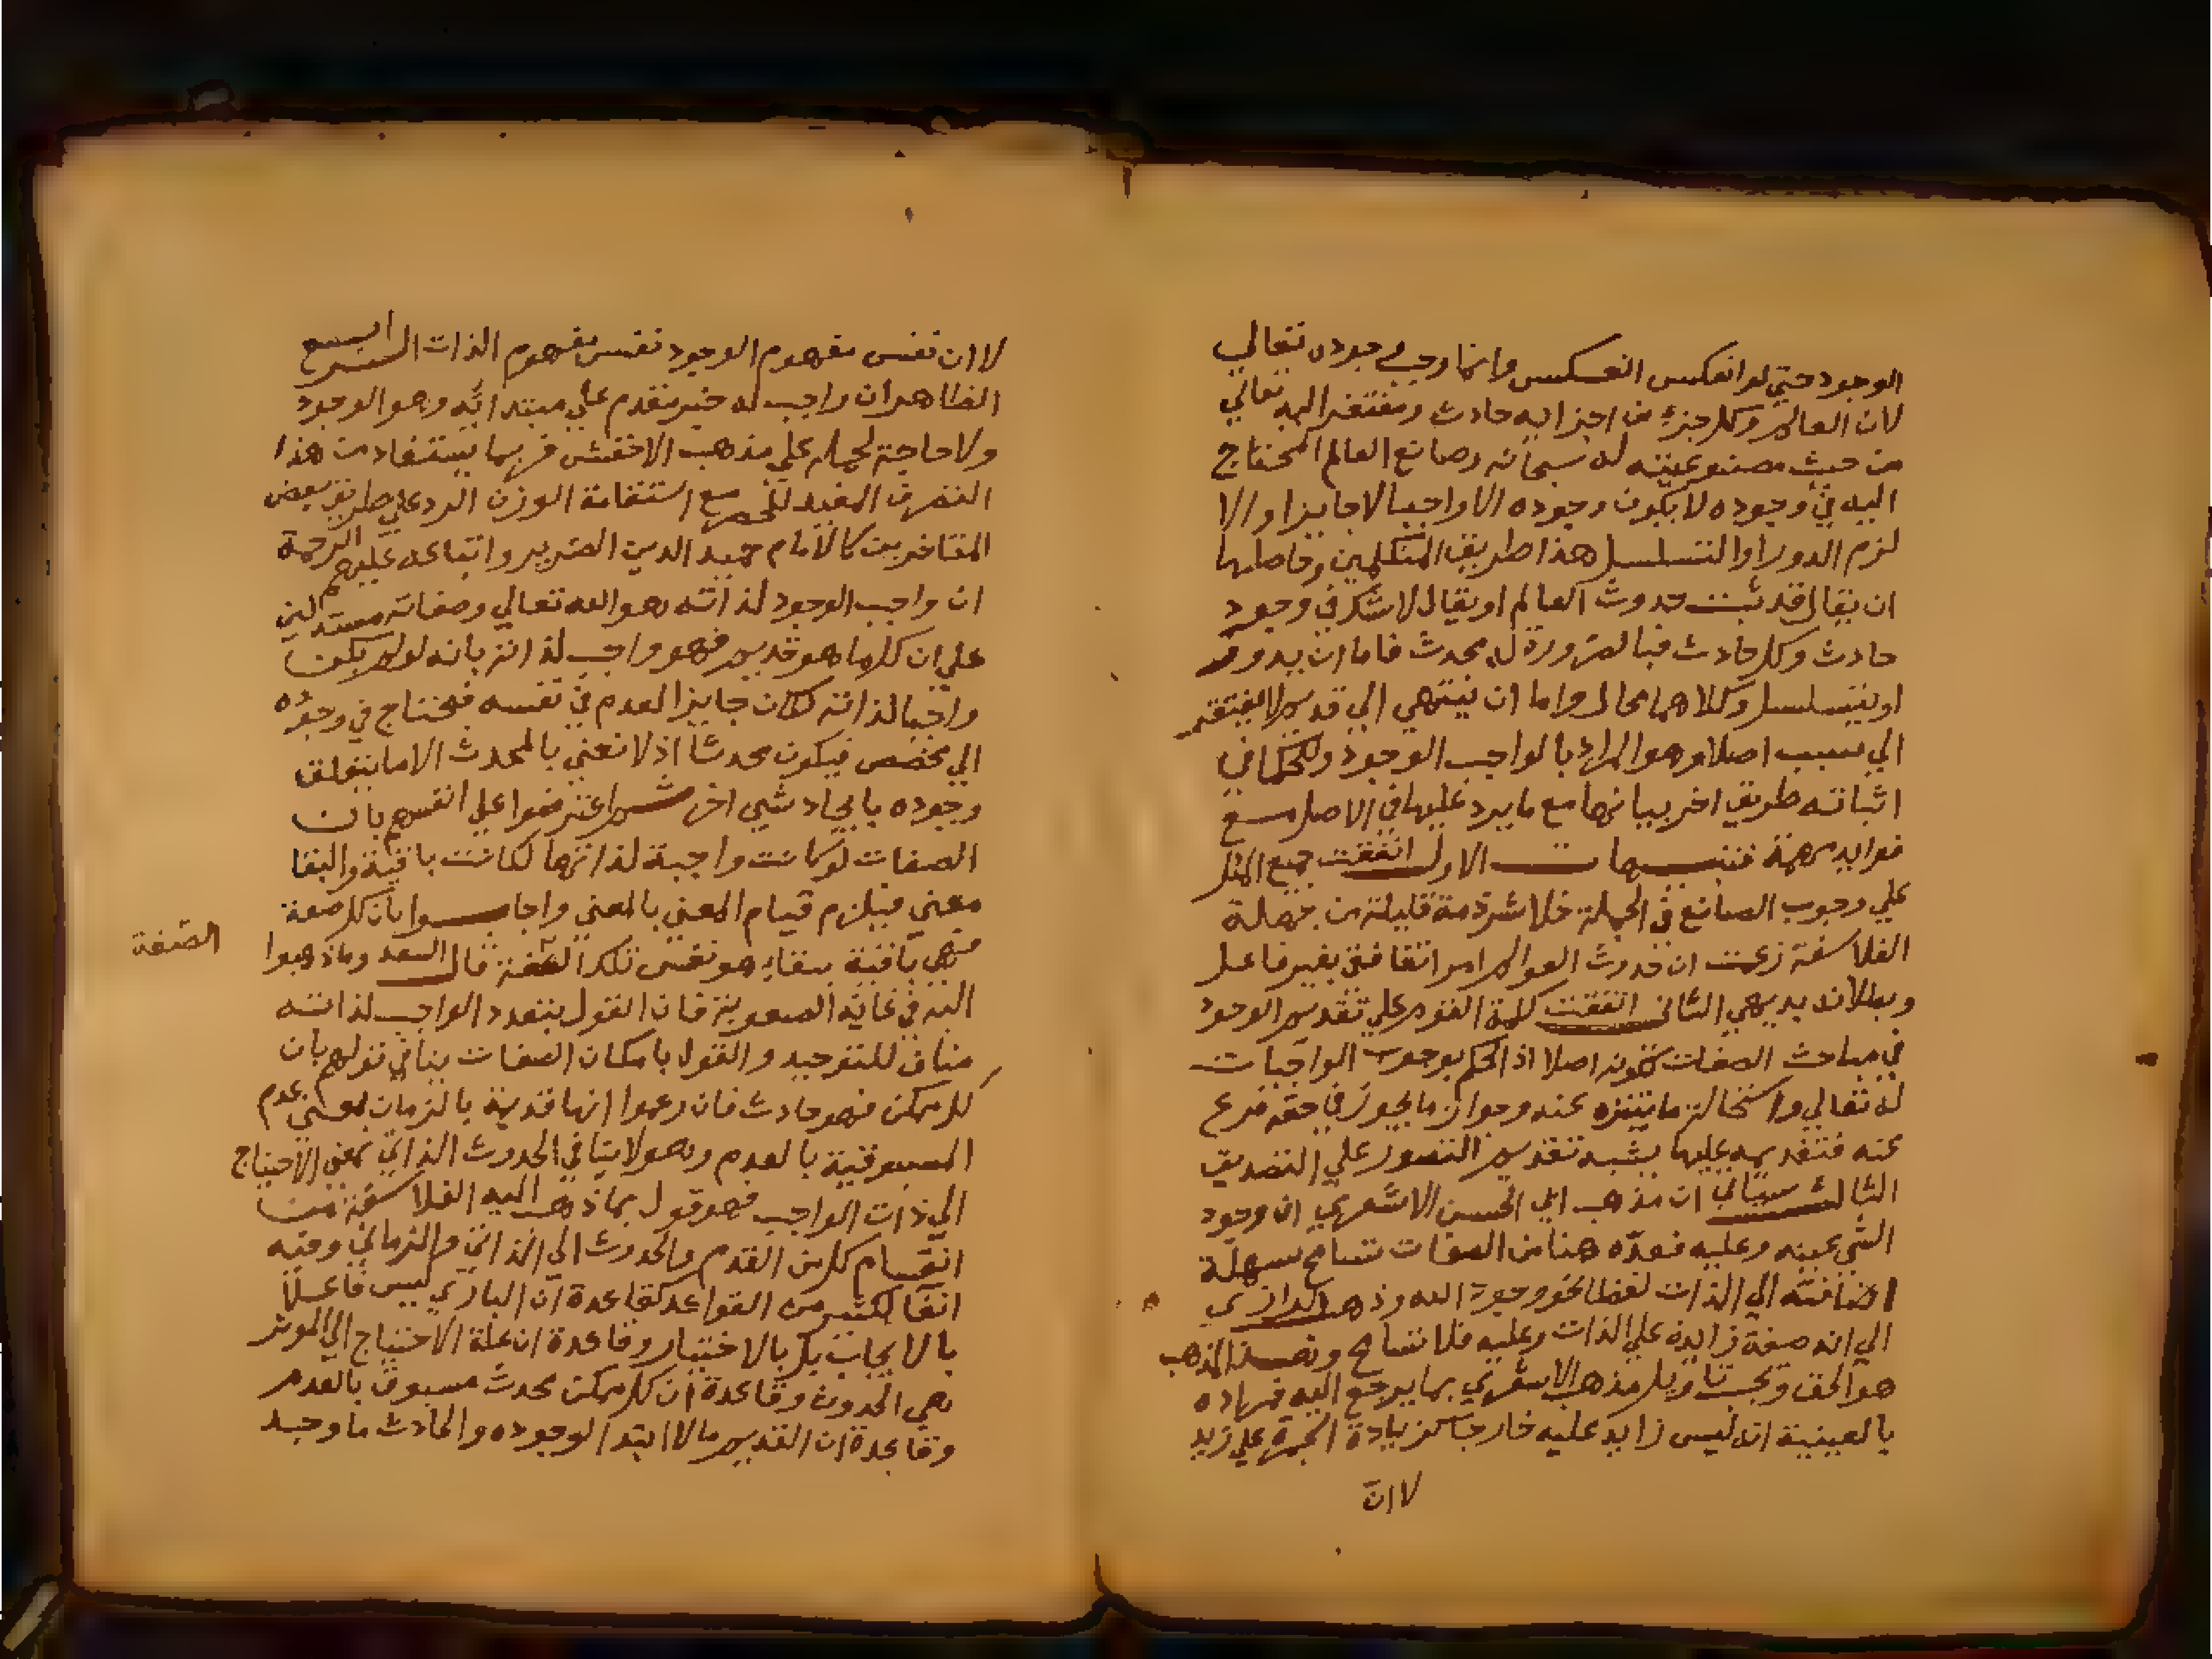 الوجود حتي لو انعكس انعكس وانما وجب وجوده تعالي
لان العالم وكل جزء من اجزايه حادث ومفتقر اليه تعالي
من حيث مصنوعيته له سبحانه وصانع العالم المحتاج
اليه في وجوده لا يكون وجوده الا واجبا لا جايزا والا
لزم الدور او التسلسل هذا طريق المتكلمين وحاصلها
ان يقال قد ثبت حدوث العالم او يقال لا شك في وجود
حادث وكل حادث فبالضرورة له محدث فاما ان يدور
او يتسلسل وكلاهما محال واما ان ينتهي الي قديم لا يفتقر
الي سبب اصلا وهو المراد بالواجب الوجود وللحكما في
اثباته طريق اخر بيانها مع ما يرد عليها في الاصل مع
فوايد مهمة تنبيهات الاول اتفقت جميع الملل
علي وجوب الصانع في الجملة خلا شرذمة قليلة من جهلة
الفلاسفة زعمت ان حدوث العوالم امر اتفاقي بغير فاعل
وبطلانه بديهي الثاني اتفقت كلمة القوم علي تقديم الوجود
في مباحث الصفات لكونه اصلا اذ الحكم بوجوب الواجبات
له تعالي واستحالة ما يتنزه عنه وجواز ما يجوز في حقه فرع
عنه فتقديمه عليها يشبه تقديم التصور علي التصديق
الثالث سياتي ان مذهب ابي الحسن الاشعري ان وجود
الشي عينه وعليه فعده هنا من الصفات تسامح سهله
اضافته الي الذات لفظا نحو وجود الله وذهب الرازي
الي انه صفة زايدة علي الذات وعليه فلا تسامح وهذا المذهب
هو الحق ويجب تاويل مذهب الاشعري بما يرجع اليه فمراده
بالعينية انه ليس زايد عليه خارجا كزيادة الجبة علي زيد
لا ان
لا ان نفس مفهوم الوجود نفس مفهوم الذات الرابع
الظاهر ان واجب له خبر مقدم علي مبتدائه وهو الوجود
ولا حاجة لحمله علي مذهب الاخفش فربما يستفاد من هذا
التصرف المفيد للحصر مع استقامة الوزن الرد علي طريق بعض
المتاخرين كالامام حميد الدين الضرير واتباعه عليهم الرحمة
ان واجب الوجود لذاته هو الله تعالي وصفاته مستدلين
علي ان كل ما هو قديم فهو واجب لذاته بانه لو لم يكن
واجبا لذاته لكان جايز العدم في نفسه فيحتاج في وجوده
الي مخصص فيكون محدثا اذ لا نعني بالمحدث الا ما يتعلق
وجوده بايجاد شي اخر ثم اعترضوا علي انفسهم بان
الصفات لو كانت واجبة لذاتها لكانت باقية والبقا
معني فيلزم قيام المعني بالمعني واجابوا بان كل صفة
فهي باقية ببقاء هو نفس تلك الصفة قال السعد وما ذهبوا
الصفة
اليه في غاية الصعوبة فان القول بتعدد الواجب لذاته
مناف للتوحيد والقول بامكان الصفات ينافي قولهم بان
كل ممكن فهو حادث فان زعموا انها قديمة بالزمان بمعني عدم
المسبوقية بالعدم وهو لا ينافي الحدوث الذاتي بمعني الاحتياج
الي ذات الواجب فهو قول بما ذهب اليه الفلاسفة من
انقسام كل من القدم والحدوث الي الذاتي والزماني وفيه
انتفا لكثير من القواعد كقاعدة ان الباري ليس فاعلا
بالايجاب بل بالاختيار وقاعدة ان علة الاحتياج الي الموثر
هي الحدوث وقاعدة ان كل ممكن محدث مسبوق بالعدم
وقاعدة ان القديم ما لا ابتدا لوجوده والحادث ما وجد